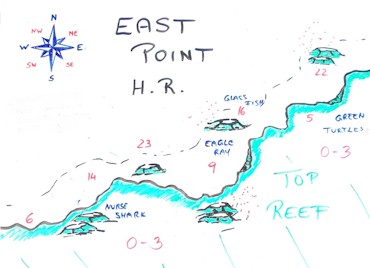 EAST
POINT
H.R.
N
NW
NE
W
E
SW
SE
S
22
GLASS FISH
16
5
GREEN
TURTLES
23
EAGLE
RAY
9
0-3
14
TOP
REEF
NURSE
SHARK
6
0-3